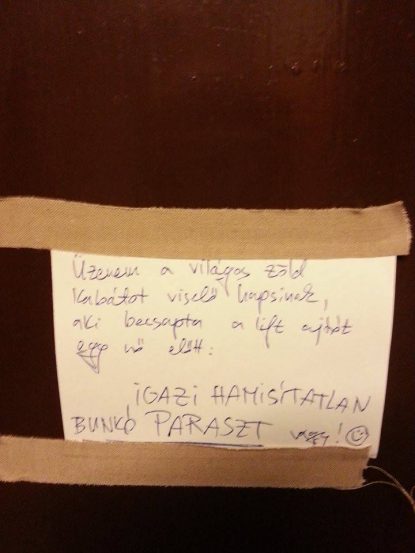 Üzenem a világos zöld
kabátot viselő hapsinak,
aki becsapta a lift ajtót
egy nő előtt:
IGAZI HAMISÍTATLAN
BUNKÓ PARASZT vagy! ☺